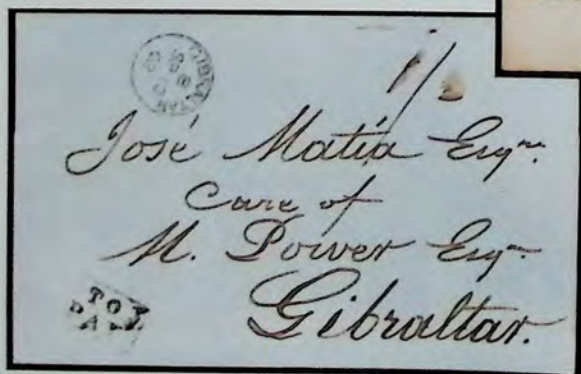 GIBRALTAR
1/-
José Matía Esqre.
Care of
M. Power Esqr.
Gibraltar.